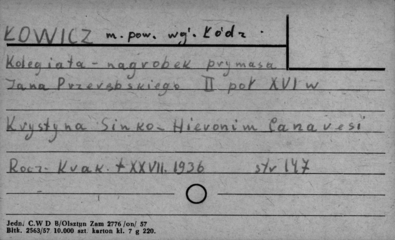 ŁOWICZ m. pow. wg. Łódz
Kolegiata - nagrobek prymasa
Jana Przerębskiego II poł XVI w
Krystyna Sinko - Hieronim Canavesi
Rocz. Krak. t XXVII. 1936 str 147
Jedn. C.W D B/Olsztyn Zam 2776 /on/ 57
Bltk. 2563/57 10.000 szt. karton kl. 7 g 220.